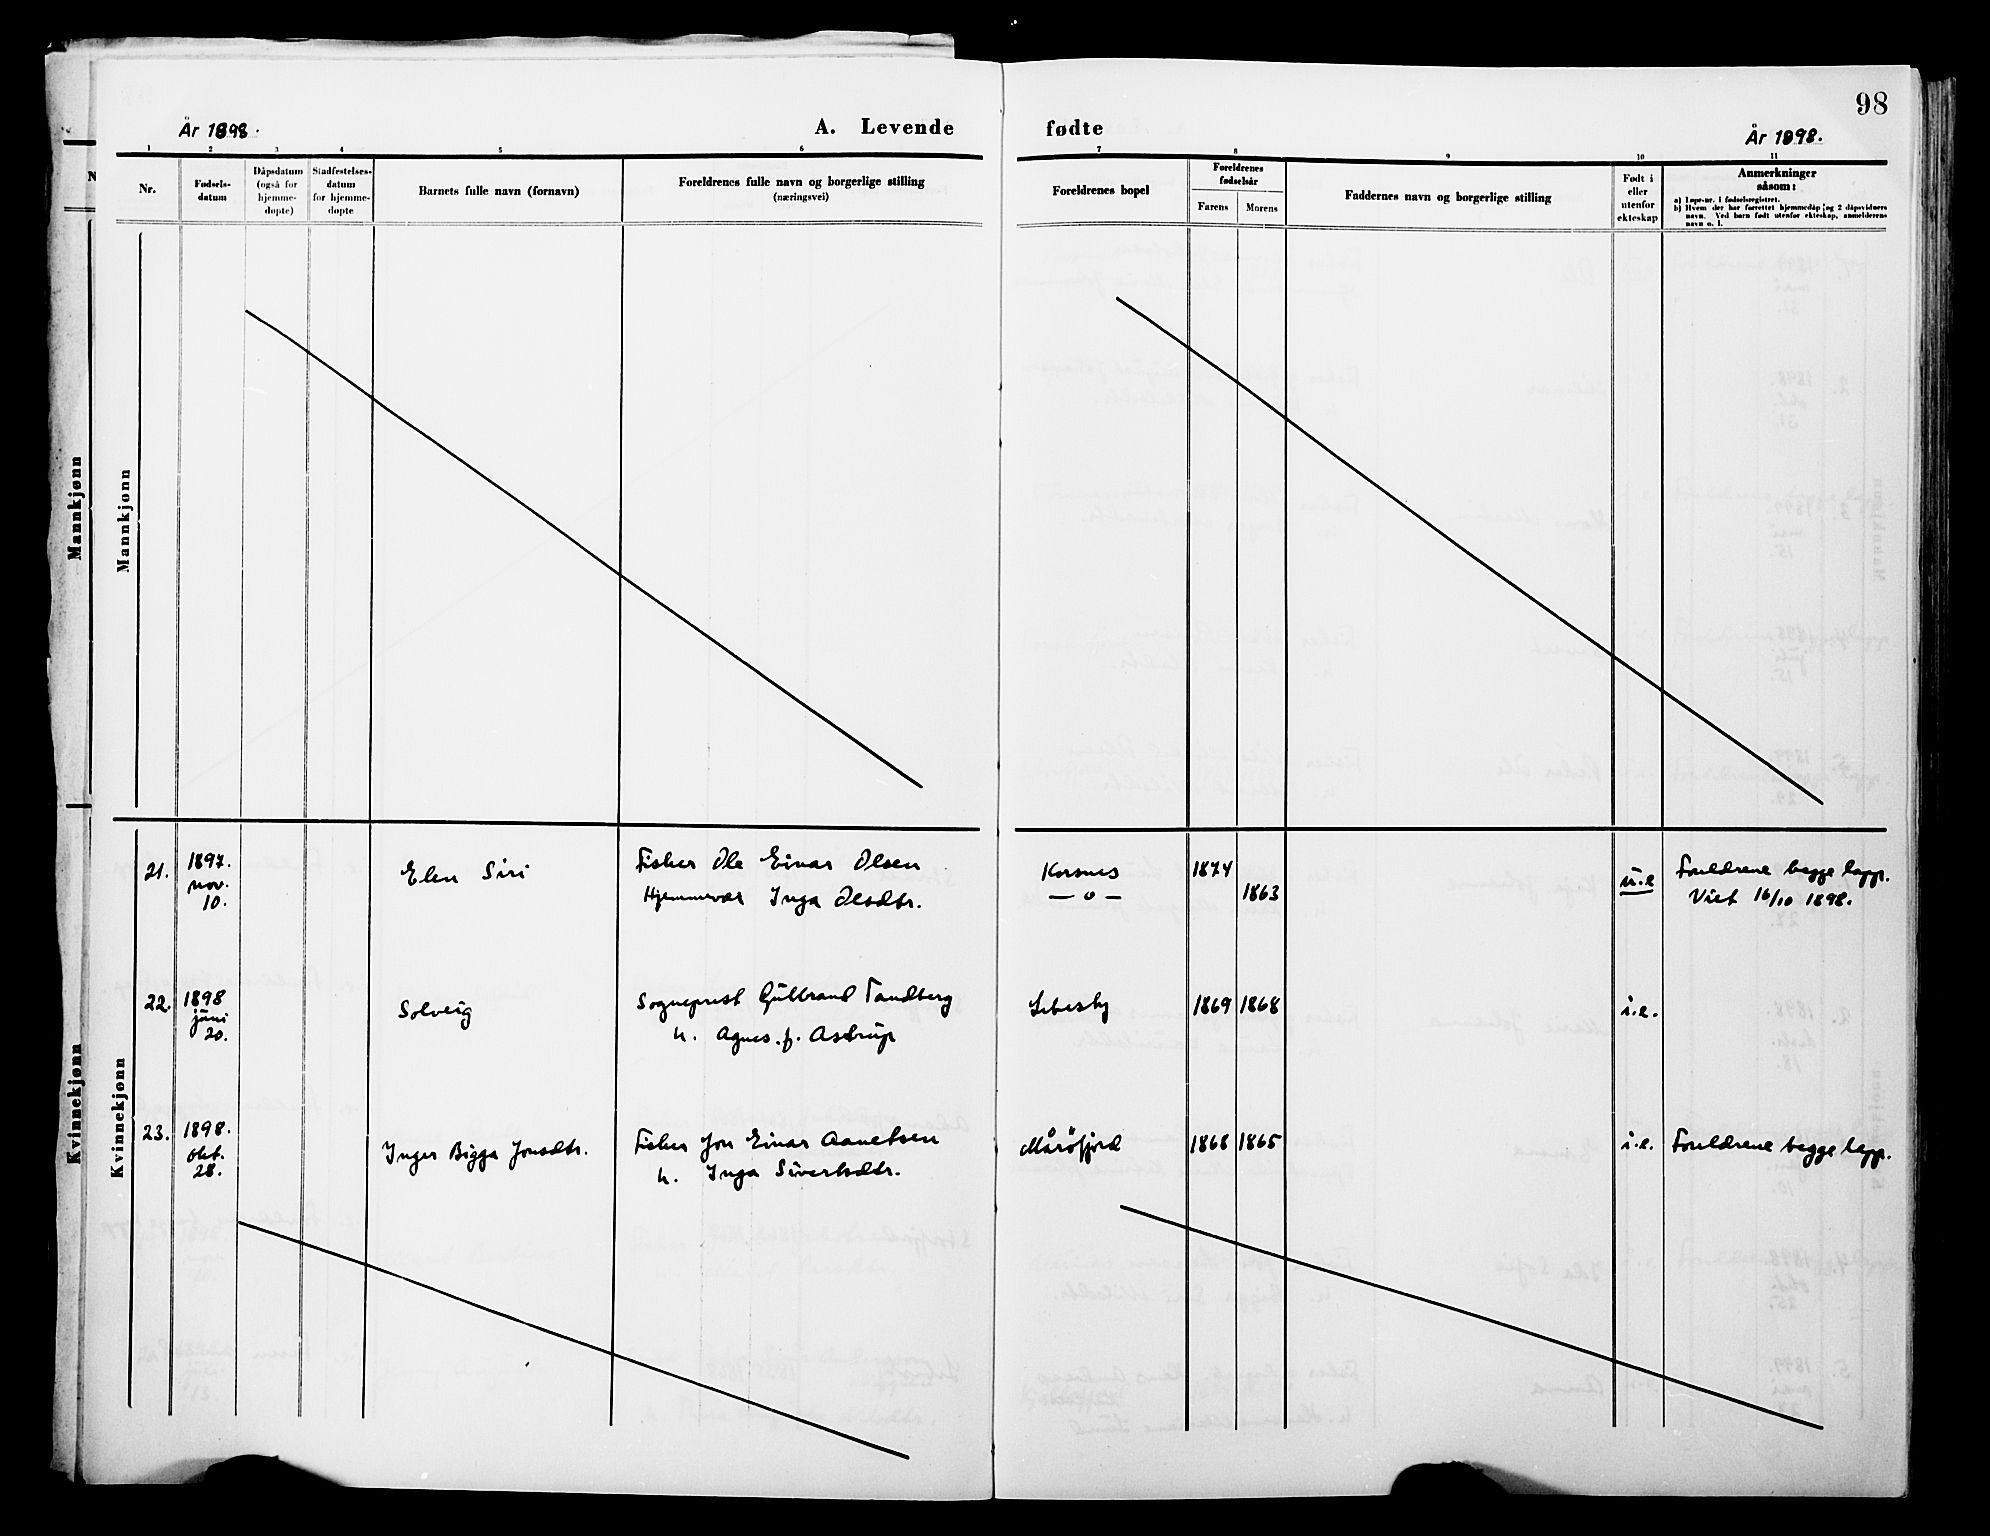 98
År 1898.
A. Levende
fødte
År 1898.
1 2 3 4 5 6
7 8 9 10 11
Nr.
Fødsels-
datum
Dåpsdatum
(også for
hjemme-
døpte)
Stadfestelses-
datum
for hjemme-
døpte
Barnets fulle navn (fornavn)
Foreldrenes fulle navn og borgerlige stilling
(næringsvei)
Foreldrenes bopel
Foreldrenes
fødselsår
Farens Morens
Faddernes navn og borgerlige stilling
Født i
eller
utenfor
ekteskap
Anmerkninger
såsom:
a) Løpe-nr. i fødselsregistret.
b) Hvem der har forrettet hjemmedåp og 2 dåpsvidners
navn. Ved barn født utenfor ekteskap, anmelderens
navn o. l.
N
Mannkjønn
Mannkjønn
Kvinnekjønn
Kvinnekjønn
21.
1897.
nov.
10.
Elen Siri
Fisker Ole Einar Olsen
Hjemmevær Inga Olsdtr.
Korsnes
— o —
1874
1863
u.e
Foreldrene begge lapp.
Viet 16/10 1898.
22.
1898
juni
20.
Solveig
Sogneprest Gulbrand Tandberg
h. Agnes f. Astrup
Lebesby
1869 1868
i.e.
23.
1898.
okt.
28.
Inger Bigga Jonsdtr.
Fisker Jon Einar Aanetsen
h. Inga Sivertsdtr.
Mårøfjord
1868 1865
i.e.
Foreldrene begge lapp.